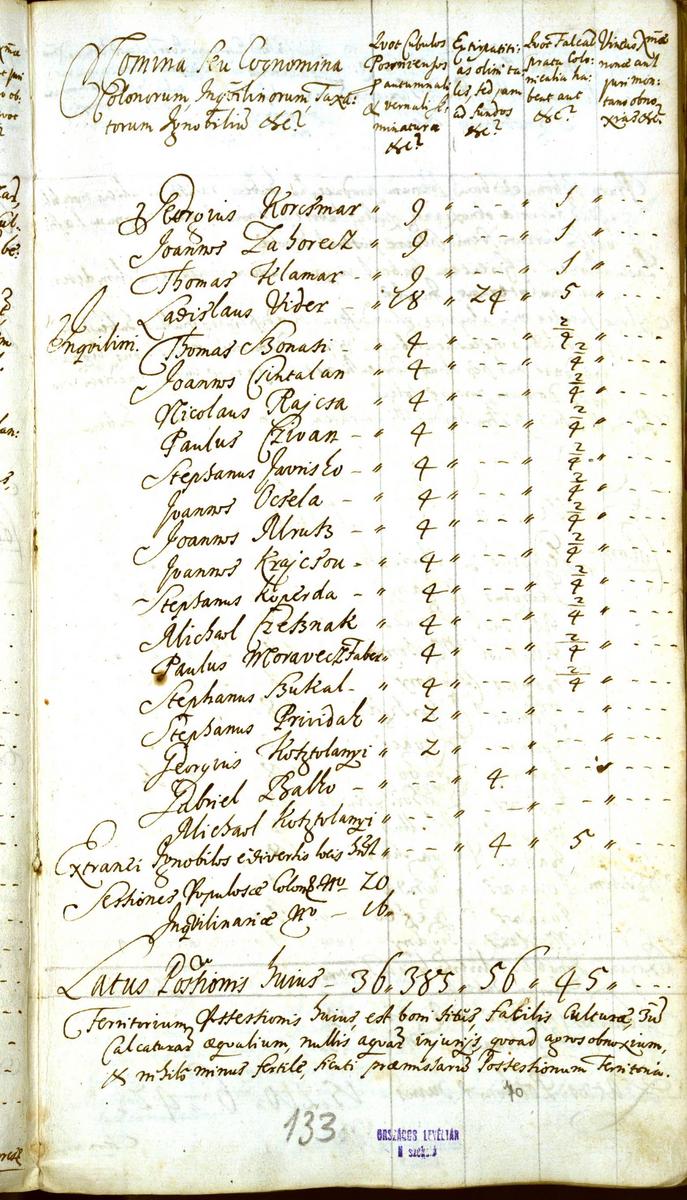 Nomina seu Cognomina
Colonorum, Inqvilinorum Taxa-
torum Ignobilium &c?
Qvot Cubulos
Posonienses
Autumnali
& vernali se-
minatura
&c?
Extirpatiti-
as olim ta-
les, sed jam
ad fundos
&c?
Qvot Falcat
prata Colo-
nicalia ha-
bent aut
&c?
Vineas
nonae aut
juri mon-
tano obno-
xias &c.
Georgius Korcsmar " 9 " - - " 1 " - - -
Joannes Zahorecz " 9 " - - " 1 " - - -
Thomas Klamar - " 9 " - - " 1 " - - -
Ladislaus Vider - " 18 " 24 " 5 " - - -
Inqvilin. Thomas Bonasi - " 4 " - - " 2/4 " - - -
Joannes Csintalan " 4 " - - " 2/4 " - - -
Nicolaus Rajcsa " 4 " - - " 2/4 " - - -
Paulus Czivan - " 4 " - - " 2/4 " - - -
Stephanus Javrisko - " 4 " - - " 2/4 " - - -
Joannes Ocsela - " 4 " - - " 2/4 " - - -
Joannes Mrusk " 4 " - - " 2/4 " - - -
Joannes Krajcsou - " 4 " - - " 2/4 " - - -
Stephanus Koperda - " 4 " - - " 2/4 " - - -
Michael Czesznak " 4 " - - " 2/4 " - - -
Paulus Moravecz Faber " 4 " - - " 2/4 " - - -
Stephanus Bukal - " 4 " - - " 2/4 " - - -
Stephanus Prividal " 2 " - - " - - " - - -
Georgius Kosztolanyi " 2 " - - " - - " - - -
Gabriel Balko - " - - " 4 " - - " - - -
Michael Kosztolanyi " - - " - - " - - " - - -
Extranei Ignobiles e diversis locis " - - " 4 " 5 " - - -
Sessiones Populosae Colon. No 20
Inqvilinariae No - 16.
Latus Possessionis huius - 36 " 385 " 56 " 45 " - - -
Territorium Possessionis huius, est boni situs, facilis Culturae,
Calcaturae aeqvalium, nullis aqvar injurijs, qvoad agros obnoxium,
& nihilo minus fertile, sicuti praemissarum Possessionum Territoria.
70
133
ORSZÁGOS LEVÉLTÁR
N szekció